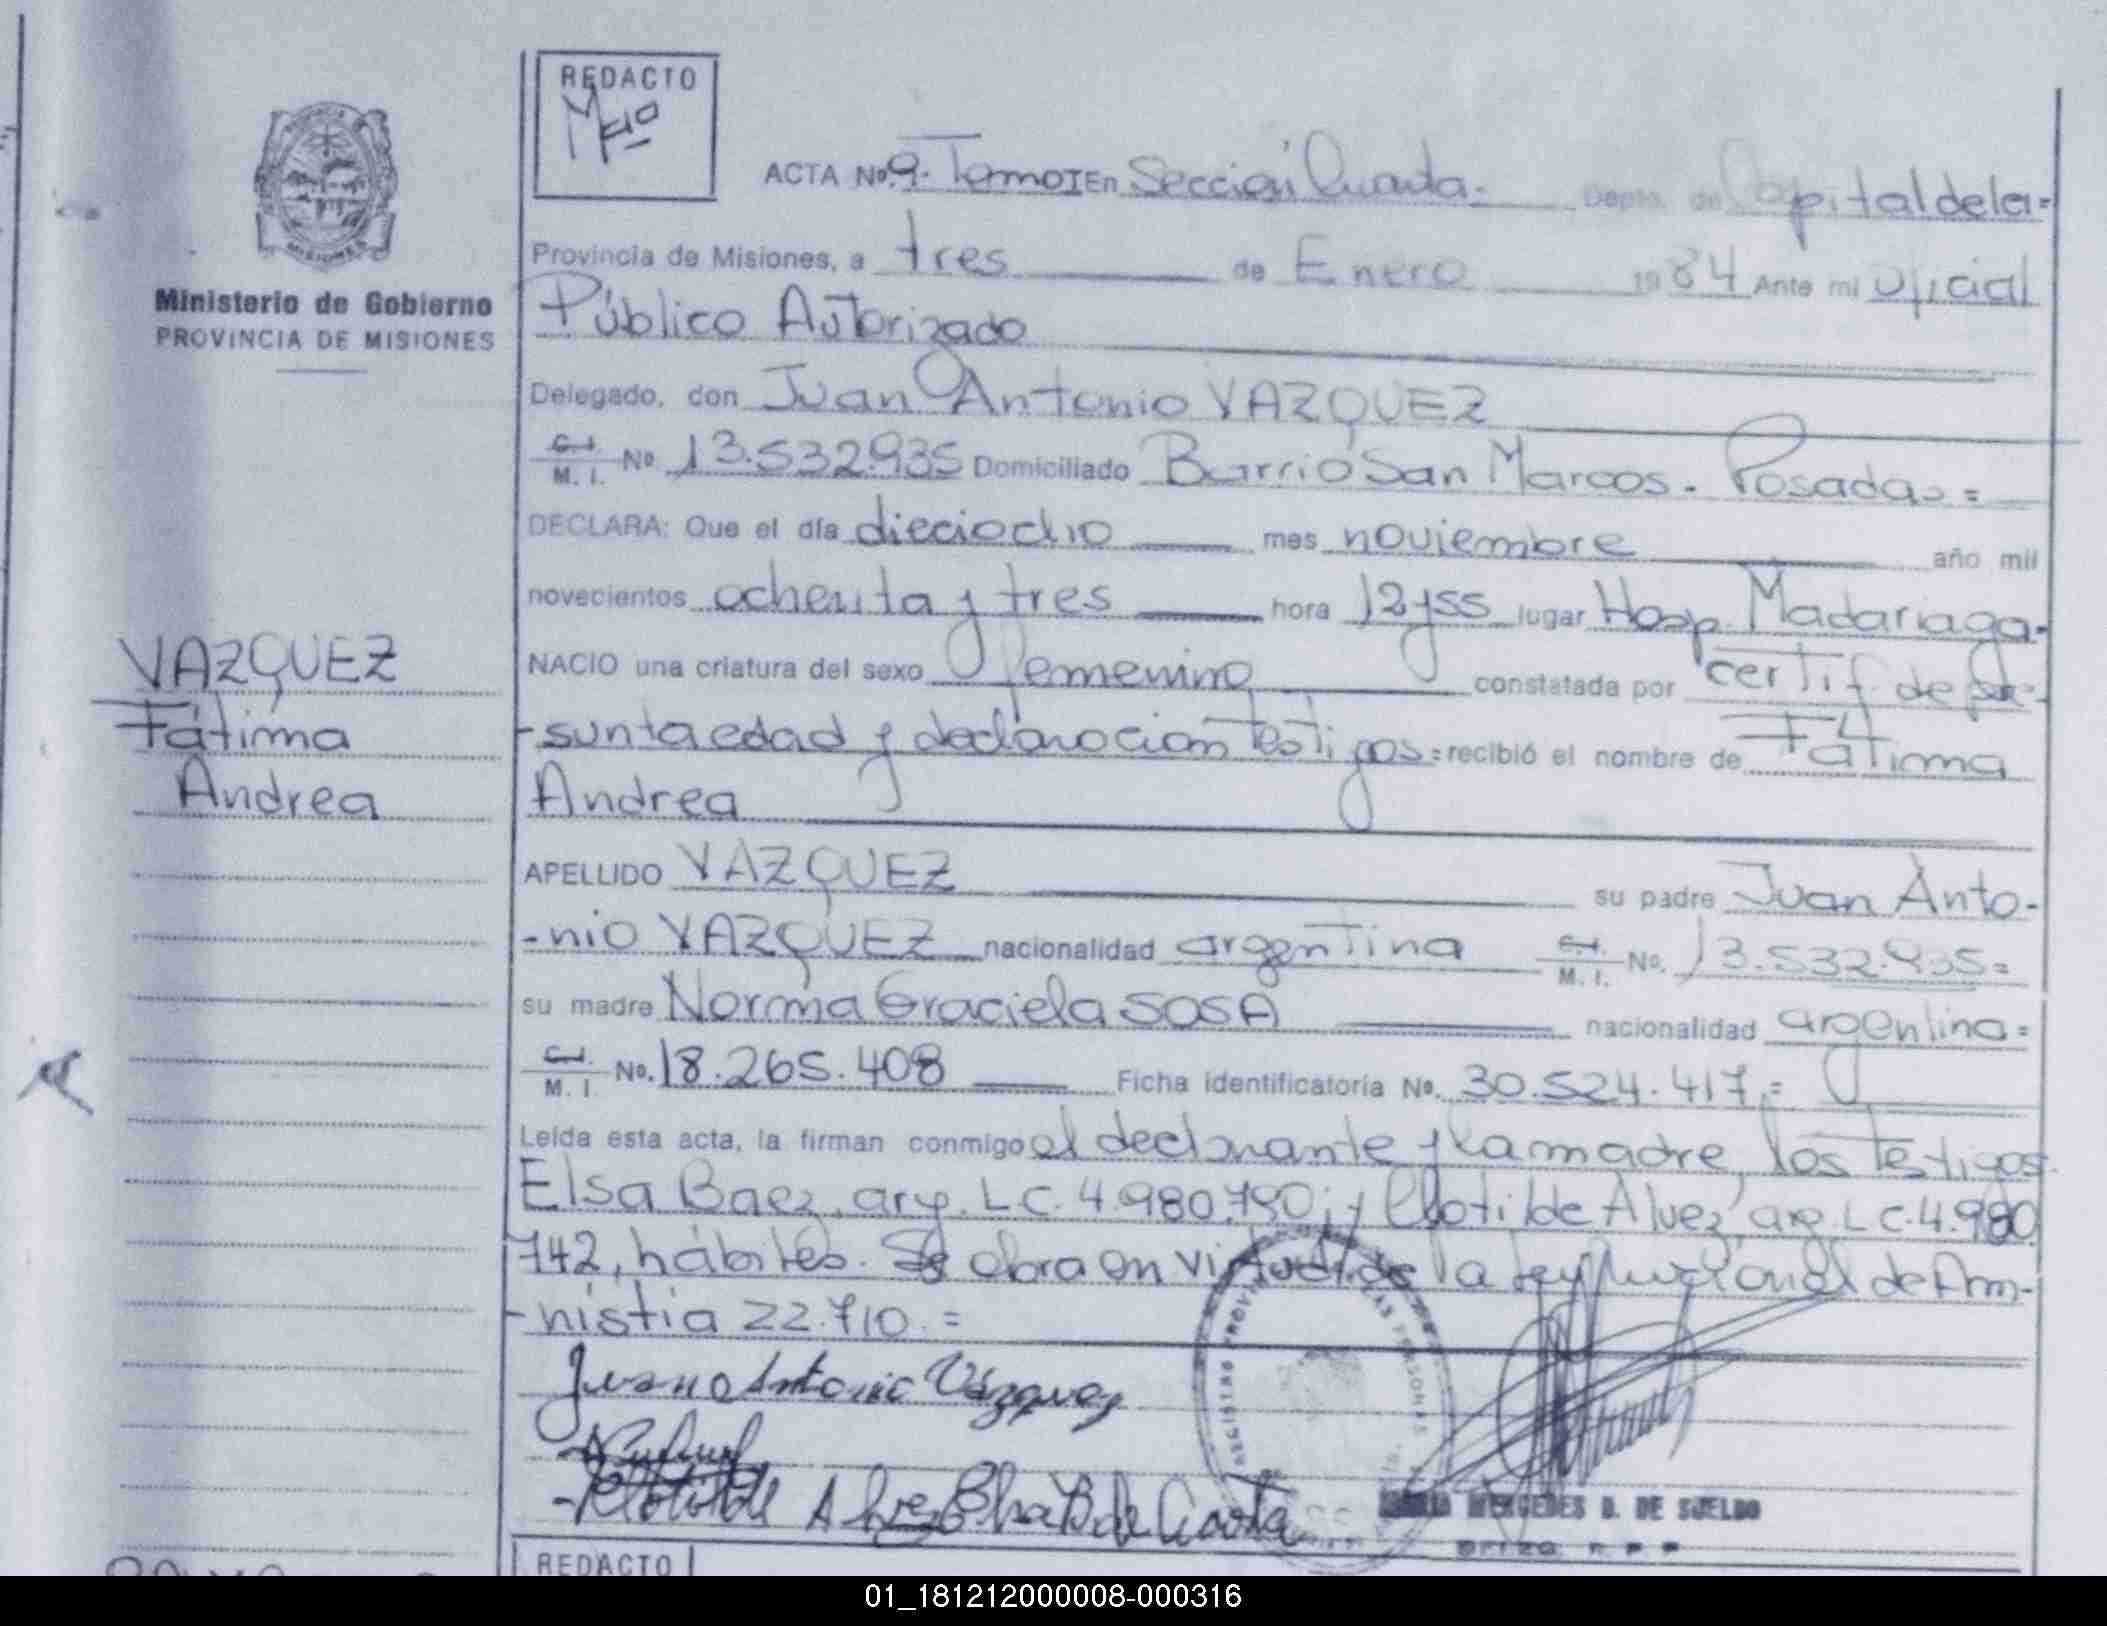 REDACTO
ACTA No. 9. Tomo I En Sección Cuarta. Depto. de Capital de la=
Provincia de Misiones, a tres de Enero 1984 Ante mi Oficial
Ministerio de Gobierno
PROVINCIA DE MISIONES
Público Autorizado
Delegado, don Juan Antonio VAZQUEZ
C.I.
M. I. No 13.532.935 Domiciliado Barrio San Marcos. Posadas=
DECLARA: Que el día dieciocho mes noviembre año mil
novecientos ochenta y tres hora 12y55 lugar Hosp. Madariaga.
VAZQUEZ
Fátima
Andrea
NACIO una criatura del sexo femenino constatada por certif. de pre-
-sunta edad y declaración testigos= recibió el nombre de Fátima
Andrea
APELLIDO VAZQUEZ su padre Juan Anto-
-nio VAZQUEZ nacionalidad argentina C.I. M. I. No. 13.532.935=
su madre Norma Graciela SOSA nacionalidad argentina=
C.I.
M. I No. 18.265.408 Ficha identificatoria No. 30.524.417.=
Leída esta acta, la firman conmigo el declarante y la madre, los testigos
Elsa Baez, arg. L C. 4.980.790; y Clotilde Alvez, arg. L C. 4.980
742, hábiles. Se obra en virtud de la Ley Nacional de Am-
-nistia 22.710.=
Juan Antonio Vázquez
Clotilde Alvez Elsa B de Acosta
REGISTRO PERSONAS
MERCEDES D. DE SUELDO
REDACTO
01_181212000008-000316